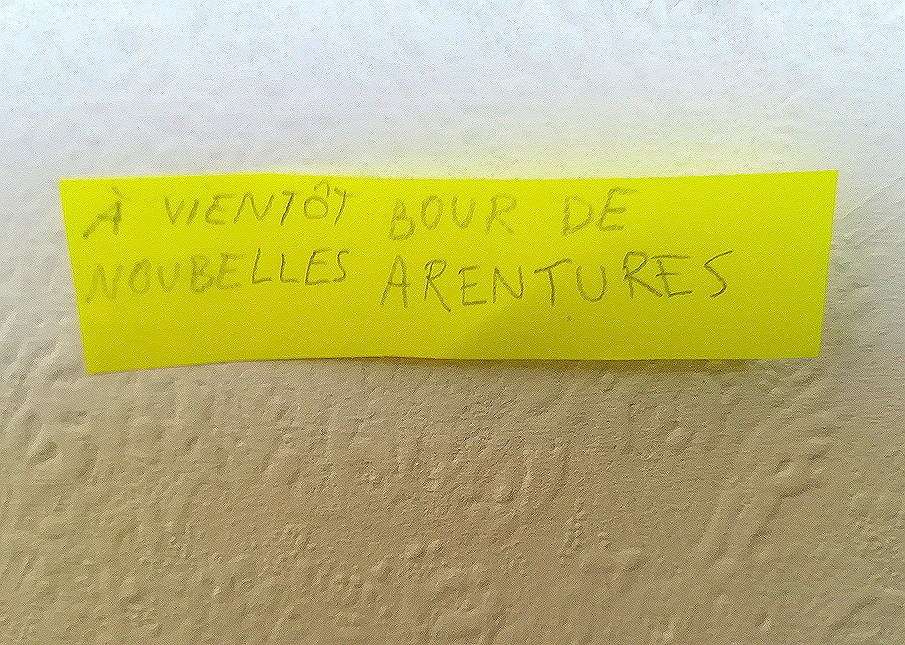 À VIENTÔT BOUR DE
NOUBELLES ARENTURES